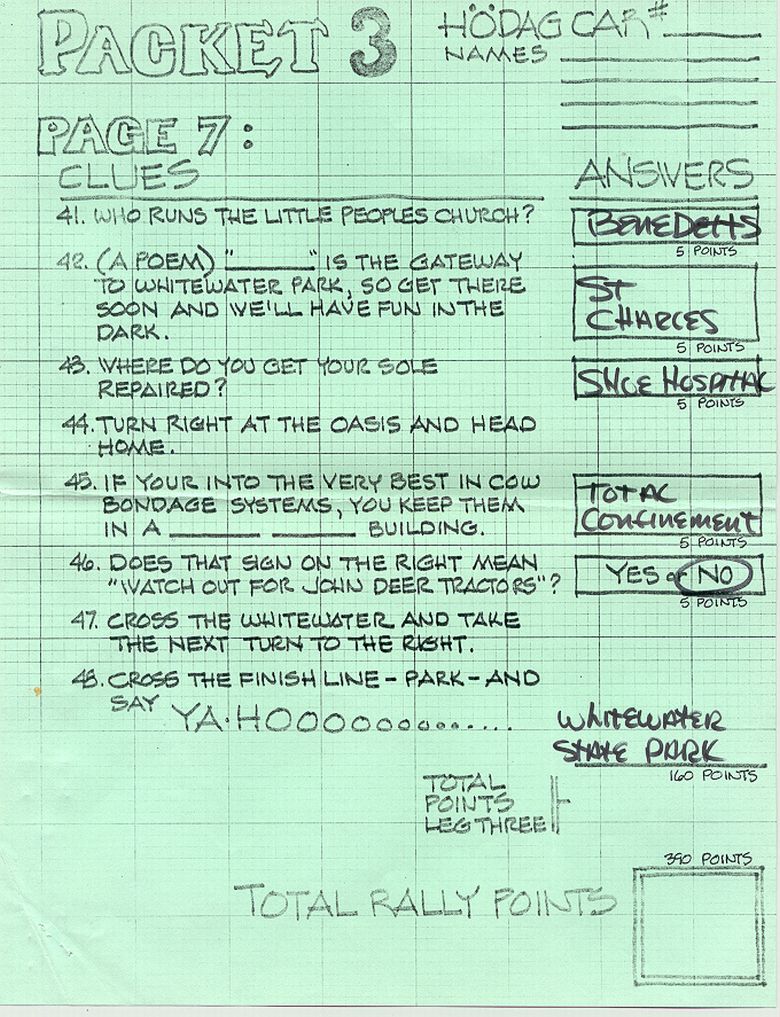 PACKET 3
HÖDAG CAR #
NAMES
PAGE 7:
CLUES
ANSWERS
41. WHO RUNS THE LITTLE PEOPLES CHURCH?
BENEDETTS
5 POINTS
42. (A POEM) "______" IS THE GATEWAY
TO WHITEWATER PARK, SO GET THERE
SOON AND WE'LL HAVE FUN IN THE
DARK.
ST
CHARLES
5 POINTS
43. WHERE DO YOU GET YOUR SOLE
REPAIRED?
SHOE HOSPITAL
5 POINTS
44. TURN RIGHT AT THE OASIS AND HEAD
HOME.
45. IF YOUR INTO THE VERY BEST IN COW
BONDAGE SYSTEMS, YOU KEEP THEM
IN A ______ ______ BUILDING.
TOTAL
CONFINEMENT
5 POINTS
46. DOES THAT SIGN ON THE RIGHT MEAN
"WATCH OUT FOR JOHN DEER TRACTORS"?
YES or NO
5 POINTS
47. CROSS THE WHITEWATER AND TAKE
THE NEXT TURN TO THE RIGHT.
48. CROSS THE FINISH LINE - PARK - AND
SAY YA·HOOOOOOOOOO.....
WHITEWATER
STATE PARK
160 POINTS
TOTAL
POINTS
LEG THREE
390 POINTS
TOTAL RALLY POINTS